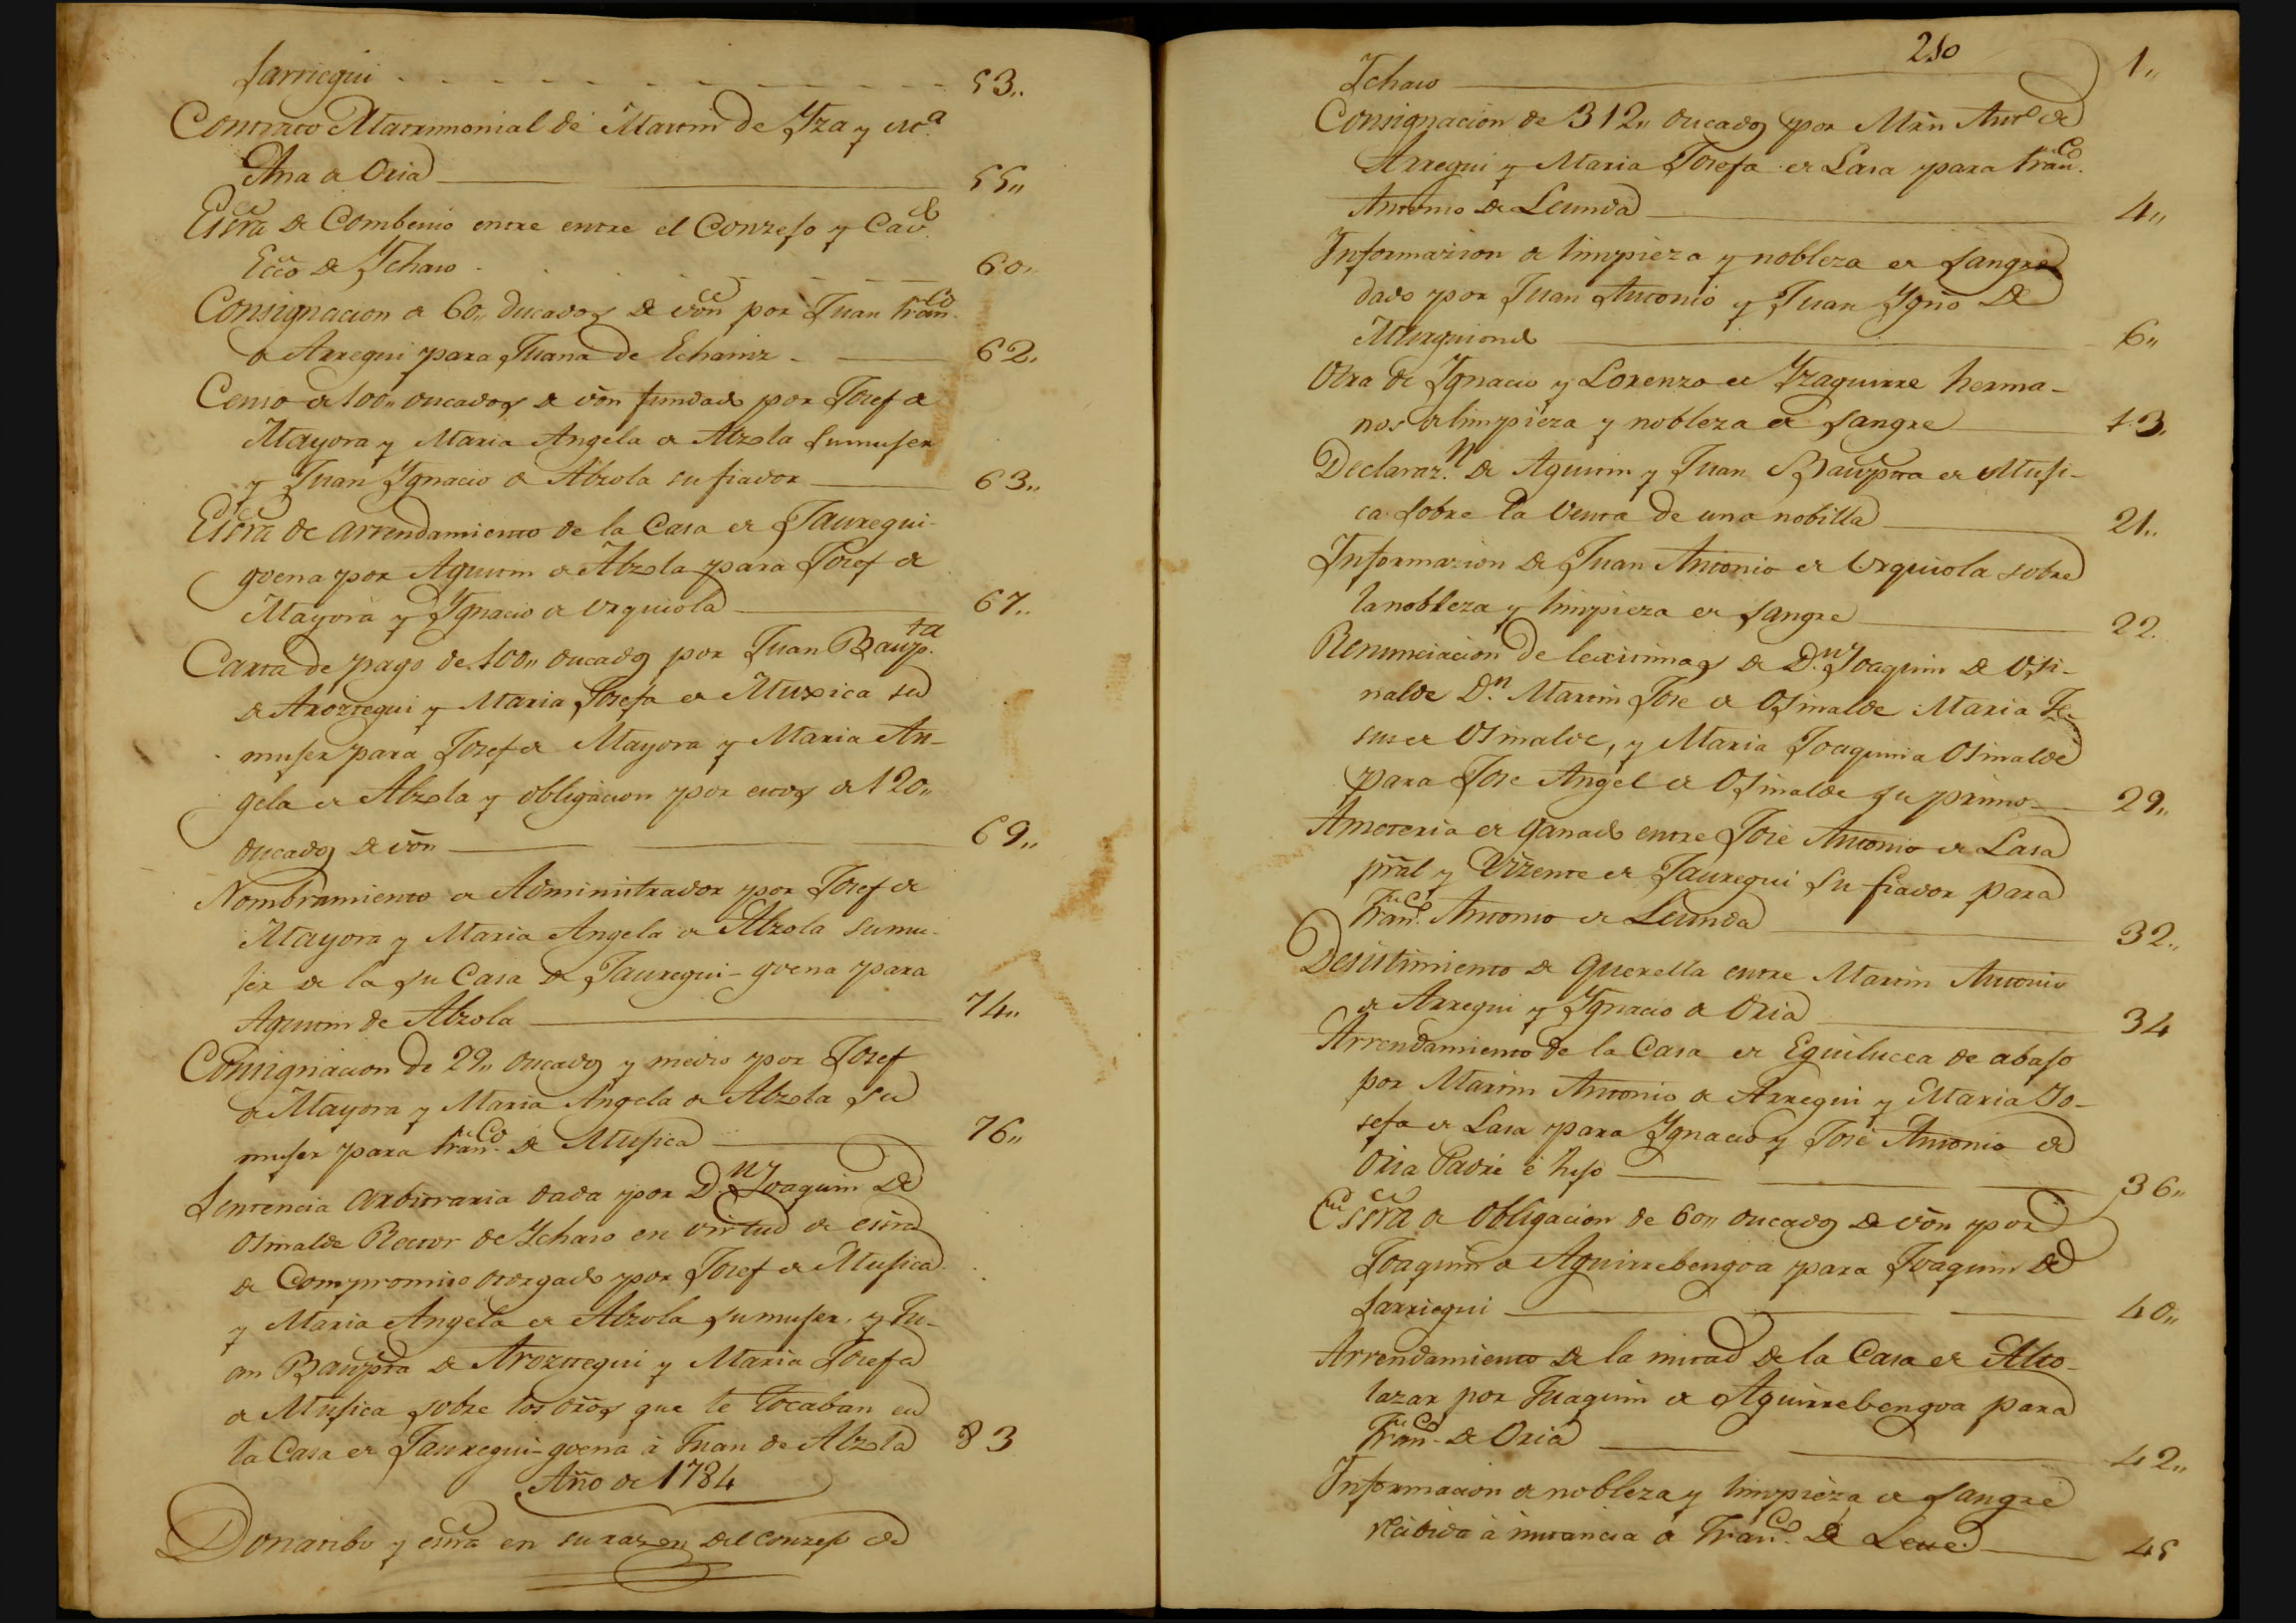 Sarriegui - - - - - - - - - - - 53..
Contrato Matrimonial de Martin de Yza y M.ª
Ana de Oria 55,,
Escrª de Combenio entre entre el Conzejo y Cav.º
Ecc̃o de Ychaso 60,,
Consignacion de 60,, Ducados de vōn por Juan Fran.co
de Arregui para Juana de Echaniz 62,
Censo de 100,, ducados de vōn fundado por Josef de
Mayora y Maria Angela de Alzola su muger
y Juan Ygnacio de Alzola su fiador 63,,
Escrª de arrendamiento de la Casa de Jauregui-
goena por Agustin de Alzola para Josef de
Mayora y Ygnacio de Urquiola 67..
Carta de pago de 100,, ducados por Juan Baup.ta
de Arozttegui y Maria Josefa de Muxica su
muger para Josef de Mayora y Maria An-
gela de Alzola y obligacion por estos de 120,,
ducados de vōn 69,,
Nombramiento de Administrador por Josef de
Mayora y Maria Angela de Alzola su mu-
ger de la su Casa de Jauregui-goena para
Agustin de Alzola 74,,
Consignacion de 29,, ducados y medio por Josef
de Mayora y Maria Angela de Alzola su
muger para Fran.co de Mujica 76,,
Sentencia arbitraria dada por D.n Joaquin de
Osinalde Rector de Ychaso en virtud de escrª
de Compromiso otorgado por Josef de Mujica
y Maria Angela de Alzola su muger, y Ju-
an Baupta de Arozttegui y Maria Josefa
de Mujica sobre los dr̃os que le tocaban en
la Casa de Jauregui-goena à Juan de Alzola 83
Año de 1784
Donatibo y escrª en su razon del conzejo de
210
Ychaso 1,,
Consignacion de 312,, ducados por Mr̃n Antº de
Arregui y Maria Josefa de Lasa para Fran.co
Antonio de Leunda 4,,
Informazion de limpieza y nobleza de sangre
dado por Juan Antonio y Juan Ygño de
Murguiondo 6,,
Otra de Ygnacio y Lorenzo de Yzaguirre herma-
nos de limpieza y nobleza de sangre 13,
Declaraz.n de Agustin y Juan Baupta de Muji-
ca sobre la venta de una nobilla 21..
Informazion de Juan Antonio de Urquiola sobre
la nobleza y limpieza de sangre 22.
Renunciacion de lexitimas de D.n Joaquin de Osi-
nalde D.n Martin Jose de Osinalde Maria Je-
sus de Osinalde, y Maria Joaquina Osinalde
para Jose Angel de Osinalde su primo 29,,
Ameteria de ganado entre Josè Antonio de Lasa
prãl y Vizente de Jauregui su fiador para
Fran.co Antonio de Leunda 32,,
Desistimiento de querella entre Martin Antonio
de Arregui y Ygnacio de Oria 34
Arrendamiento de la Casa de Eguilucea de abajo
por Martin Antonio de Arregui y Maria Jo-
sefa de Lasa para Ygnacio y Josè Antonio de
Oria Padre è hijo 36,,
Escrª de obligacion de 60,, ducados de vōn por
Joaquin de Aguirrebengoa para Joaquin de
Sarriegui 40,,
Arrendamiento de la mitad de la Casa de Alto-
lazar por Juaquin de Aguirrebengoa para
Fran.co de Oria 42,,
Informacion de nobleza y limpieza de sangre
recibida à instancia de Fran.co de 45